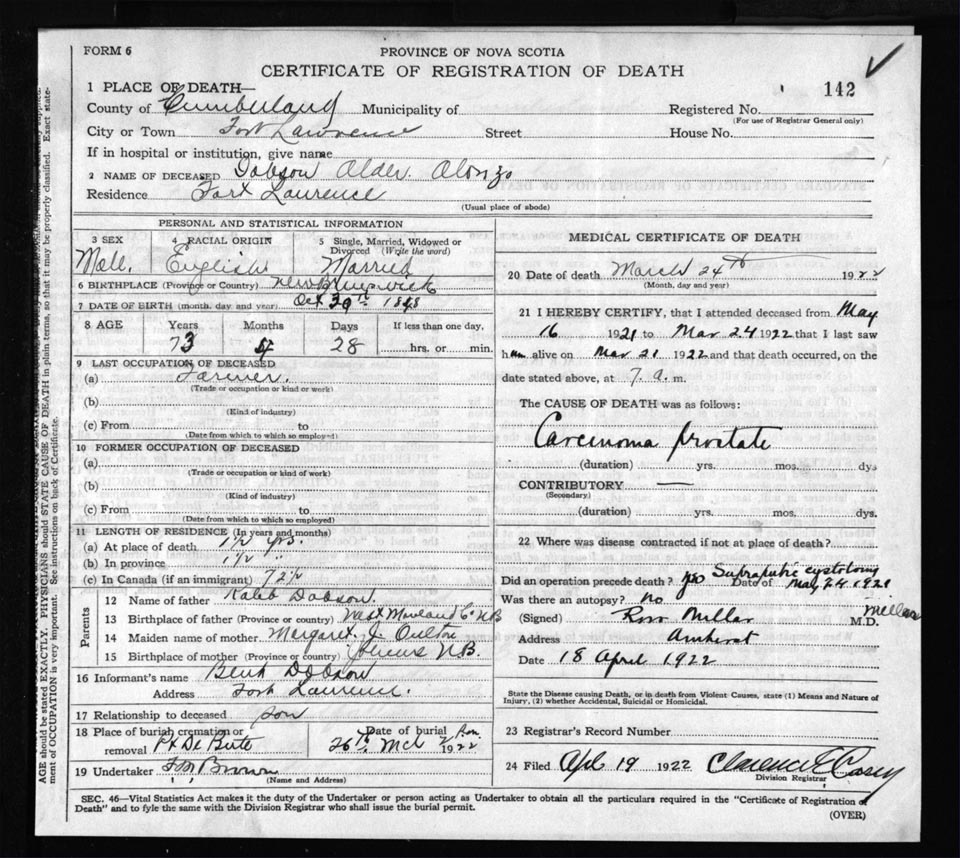 FORM 6
PROVINCE OF NOVA SCOTIA
CERTIFICATE OF REGISTRATION OF DEATH
142
1 PLACE OF DEATH—
County of Cumberland Municipality of Registered No.
(For use of Registrar General only)
City or Town Fort Lawrence Street House No.
If in hospital or institution, give name
2 NAME OF DECEASED Dobson Alder Alonzo
Residence Fort Lawrence
(Usual place of abode)
PERSONAL AND STATISTICAL INFORMATION
3 SEX 4 RACIAL ORIGIN 5 Single, Married, Widowed or Divorced (Write the word)
English Married
6 BIRTHPLACE (Province or Country) New Brunswick
7 DATE OF BIRTH (month, day and year) Oct 1848
8 AGE Years Months Days If less than one day,
73 28 hrs. or min.
9 LAST OCCUPATION OF DECEASED
(a) Farmer.
(Trade or occupation or kind or work)
(b)
(Kind of industry)
(c) From to
(Date from which to which so employed)
10 FORMER OCCUPATION OF DECEASED
(a)
(Trade or occupation or kind of work)
(b)
(Kind of industry)
(c) From to
(Date from which to which so employed)
11 LENGTH OF RESIDENCE (In years and months)
(a) At place of death 1½ yrs.
(b) In province 1½ "
(c) In Canada (if an immigrant) 72½
Parents
12 Name of father Kaleb Dobson
13 Birthplace of father (Province or country) West Co NB
14 Maiden name of mother Margaret J. Oulton
15 Birthplace of mother (Province or country) N.B.
16 Informant's name Dobson
Address Fort Lawrence.
17 Relationship to deceased son
18 Place of burial cremation or removal Pt De Bute Date of burial
26th Mch 1922
19 Undertaker Brown
(Name and Address)
MEDICAL CERTIFICATE OF DEATH
20 Date of death March 24th 1922
(Month, day and year)
21 I HEREBY CERTIFY, that I attended deceased from May
16 1921 to Mar 24 1922 that I last saw
him alive on Mar 21 1922 and that death occurred, on the
date stated above, at 7. a. m.
The CAUSE OF DEATH was as follows:
Carcinoma prostate
(duration) yrs. mos. dys
CONTRIBUTORY —
(Secondary)
(duration) yrs. mos. dys.
22 Where was disease contracted if not at place of death?
Suprapubic cystotomy
Did an operation precede death? yes Date of May 24 1921
Was there an autopsy? No
(Signed) Ross Millar M.D. Millar
Address Amherst
Date 18 April 1922
State the Disease causing Death, or in death from Violent Causes, state (1) Means and Nature of
Injury, (2) whether Accidental, Suicidal or Homicidal.
23 Registrar's Record Number
24 Filed Apl 19 1922 Clarence E Casey
Division Registrar
SEC. 46—Vital Statistics Act makes it the duty of the Undertaker or person acting as Undertaker to obtain all the particulars required in the "Certificate of Registration of
Death" and to fyle the same with the Division Registrar who shall issue the burial permit.
(OVER)
AGE should be stated EXACTLY. PHYSICIANS should STATE CAUSE OF DEATH in plain terms, so that it may be properly classified. Exact state-
ment of OCCUPATION is very important. See instructions on back of Certificate.